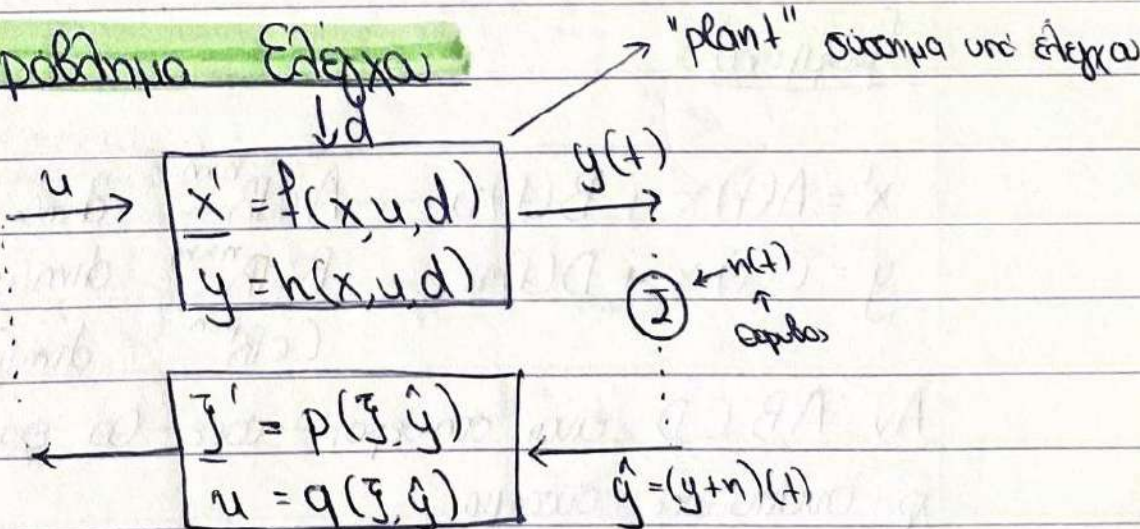 ρόβλημα Ελέγχου
"plant" σύστημα υπό έλεγχου
↓d
u
x' = f(x,u,d)
y = h(x,u,d)
y(t)
Σ ← n(t)
↑
θόρυβος
ξ' = p(ξ,ŷ)
u = q(ξ,ŷ)
ŷ = (y+n)(t)